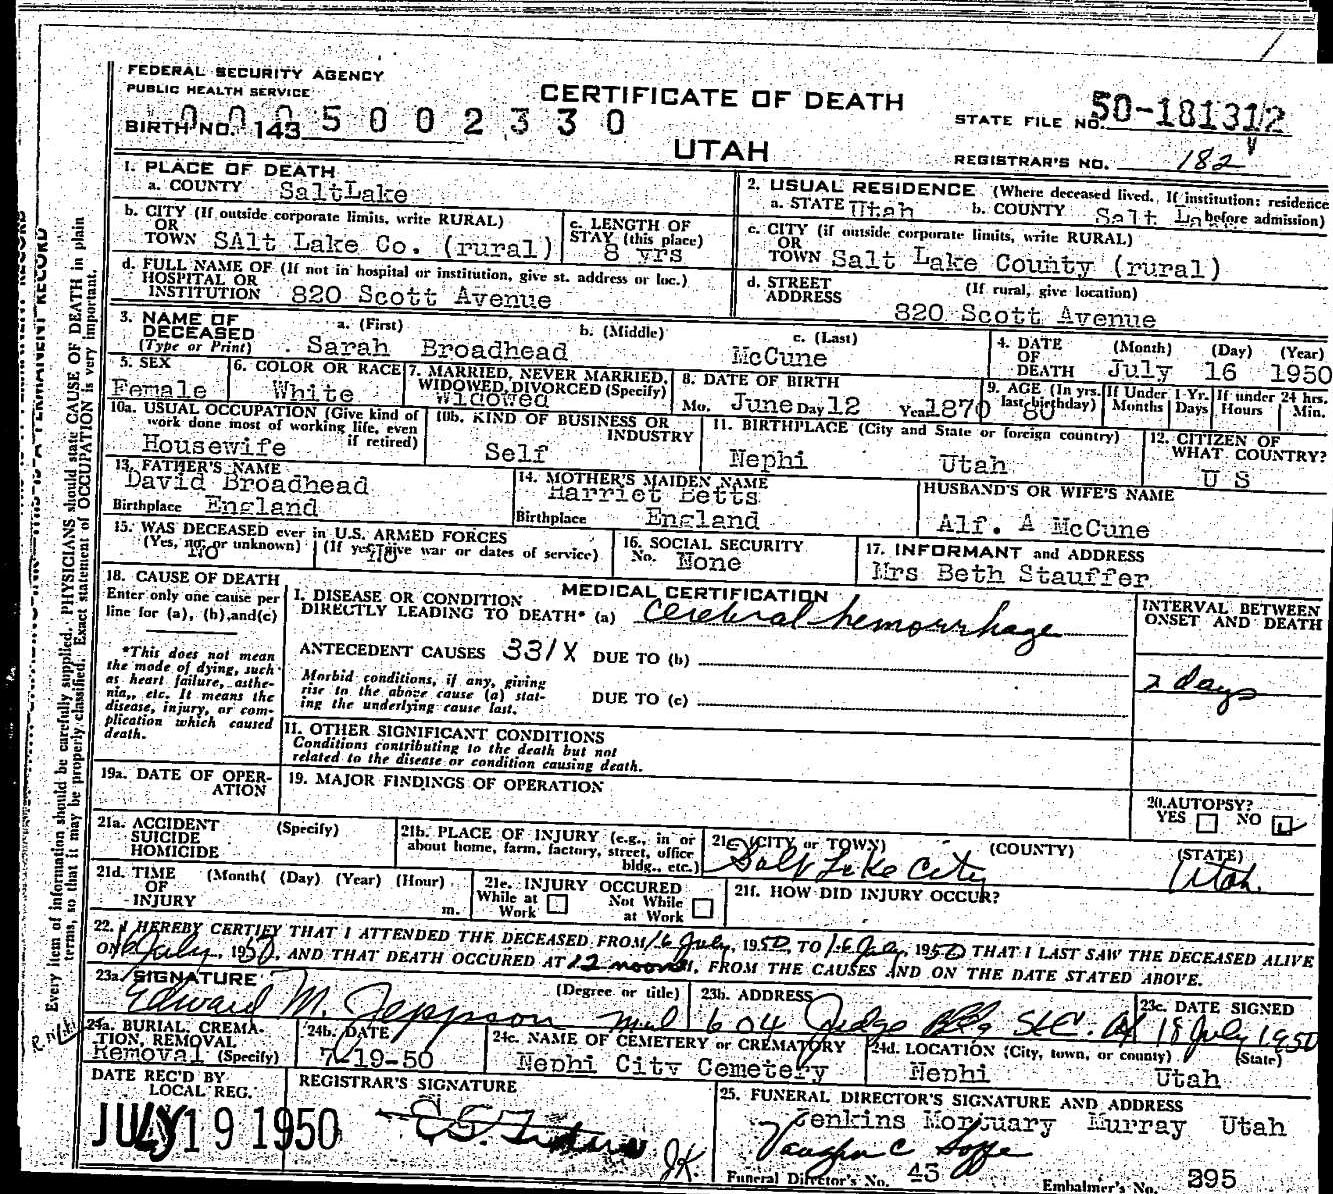 FEDERAL SECURITY AGENCY
PUBLIC HEALTH SERVICE
CERTIFICATE OF DEATH
UTAH
0005002330
BIRTH NO. 143
STATE FILE NO. 50-181312
REGISTRAR'S NO. 182
1. PLACE OF DEATH
a. COUNTY SaltLake
b. CITY (If outside corporate limits, write RURAL)
OR
TOWN SAlt Lake Co. (rural)
c. LENGTH OF
STAY (this place)
8 yrs
d. FULL NAME OF (If not in hospital or institution, give st. address or loc.)
HOSPITAL OR
INSTITUTION 820 Scott Avenue
2. USUAL RESIDENCE (Where deceased lived. If institution: residence
before admission)
a. STATE Utah b. COUNTY Salt
c. CITY (if outside corporate limits, write RURAL)
OR
TOWN Salt Lake County (rural)
d. STREET (If rural, give location)
ADDRESS
820 Scott Avenue
3. NAME OF
DECEASED
(Type or Print)
a. (First) b. (Middle) c. (Last)
Sarah Broadhead McCune
4. DATE
OF
DEATH
(Month) (Day) (Year)
July 16 1950
5. SEX
Female
6. COLOR OR RACE
White
7. MARRIED, NEVER MARRIED,
WIDOWED, DIVORCED (Specify)
Widowed
8. DATE OF BIRTH
Mo. June Day 12 Year 1870
9. AGE (In yrs.
last birthday)
80
If Under 1 Yr.
Months Days
If under 24 hrs.
Hours Min.
10a. USUAL OCCUPATION (Give kind of
work done most of working life, even
if retired)
Housewife
10b. KIND OF BUSINESS OR
INDUSTRY
Self
11. BIRTHPLACE (City and State or foreign country)
Nephi Utah
12. CITIZEN OF
WHAT COUNTRY?
U S
13. FATHER'S NAME
David Broadhead
Birthplace England
14. MOTHER'S MAIDEN NAME
Harriet Betts
Birthplace England
HUSBAND'S OR WIFE'S NAME
Alf. A McCune
15. WAS DECEASED ever in U.S. ARMED FORCES
(Yes, no, or unknown) (If yes, give war or dates of service)
no no
16. SOCIAL SECURITY
No. None
17. INFORMANT and ADDRESS
Mrs Beth Stauffer
18. CAUSE OF DEATH
Enter only one cause per
line for (a), (b), and (c)
*This does not mean
the mode of dying, such
as heart failure, asthe-
nia,, etc. It means the
disease, injury, or com-
plication which caused
death.
MEDICAL CERTIFICATION
I. DISEASE OR CONDITION
DIRECTLY LEADING TO DEATH* (a) Cerebral hemorrhage
ANTECEDENT CAUSES 331X DUE TO (b)
Morbid conditions, if any, giving
rise to the above cause (a) stat-
ing the underlying cause last.
DUE TO (c)
INTERVAL BETWEEN
ONSET AND DEATH
2 days
11. OTHER SIGNIFICANT CONDITIONS
Conditions contributing to the death but not
related to the disease or condition causing death.
19a. DATE OF OPER-
ATION
19. MAJOR FINDINGS OF OPERATION
20. AUTOPSY?
YES NO
21a. ACCIDENT (Specify)
SUICIDE
HOMICIDE
21b. PLACE OF INJURY (e.g., in or
about home, farm, factory, street, office
bldg., etc.)
21c. (CITY or TOWN) (COUNTY) (STATE)
Salt Lake City Utah.
21d. TIME (Month( (Day) (Year) (Hour)
OF
INJURY m.
21e. INJURY OCCURED
While at Not While
Work at Work
21f. HOW DID INJURY OCCUR?
22. I HEREBY CERTIFY THAT I ATTENDED THE DECEASED FROM 16 July, 1950, TO 16 July, 1950 THAT I LAST SAW THE DECEASED ALIVE
ON 16 July, 1950, AND THAT DEATH OCCURED AT 12 noon M, FROM THE CAUSES AND ON THE DATE STATED ABOVE.
23a. SIGNATURE (Degree or title)
Edward M. Jeppson md
23b. ADDRESS
604 Judge Bldg SLC.
23c. DATE SIGNED
18 July 1950
24a. BURIAL, CREMA-
TION, REMOVAL
Removal (Specify)
24b. DATE
7-19-50
24c. NAME OF CEMETERY or CREMATORY
Nephi City Cemetery
24d. LOCATION (City, town, or county) (State)
Nephi Utah
DATE REC'D BY
LOCAL REG.
JULY 19 1950
REGISTRAR'S SIGNATURE
J.K.
25. FUNERAL DIRECTOR'S SIGNATURE AND ADDRESS
Jenkins Mortuary Murray Utah
Vaughn C
Funeral Director's No. 43
Embalmer's No. 395
Every item of information should be carefully supplied. PHYSICIANS should state CAUSE OF DEATH in plain
terms, so that it may be properly classified. Exact statement of OCCUPATION is very important.